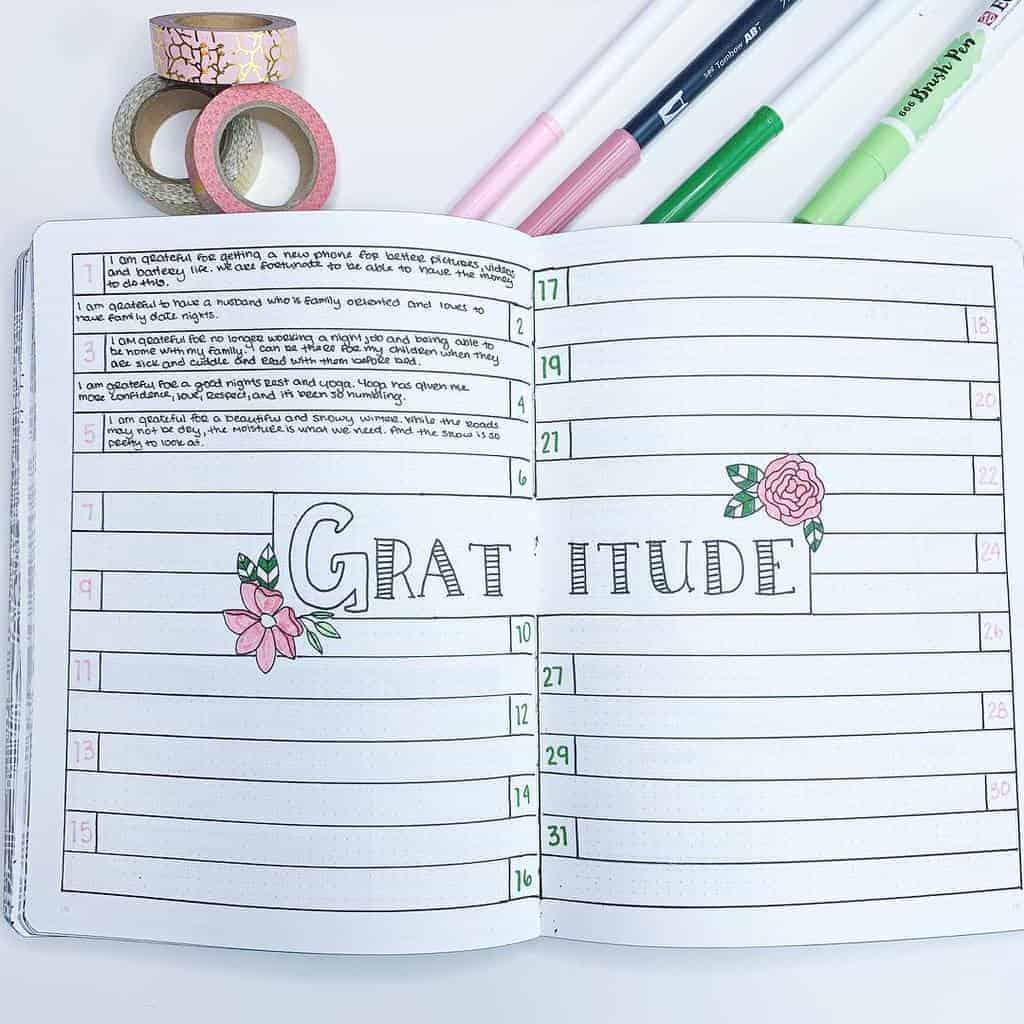 see Tombow ABT
666 Brush Pen
1
I am grateful for getting a new phone for better pictures, videos
and battery life. We are fortunate to be able to have the money
to do this.
I am grateful to have a husband who is family oriented and loves to
have family date nights.
2
3
I am grateful for no longer working a night job and being able to
be home with my family. I can be there for my children when they
are sick and cuddle and read with them before bed.
I am grateful for a good nights rest and yoga. Yoga has given me
more confidence, love, respect, and it's been so humbling.
4
5
I am grateful for a beautiful and snowy winter. While the roads
may not be dry, the moisture is what we need. And the snow is so
pretty to look at.
6
7
9
10
11
12
13
14
15
16
GRATITUDE
17
18
19
20
21
22
24
26
27
28
29
30
31